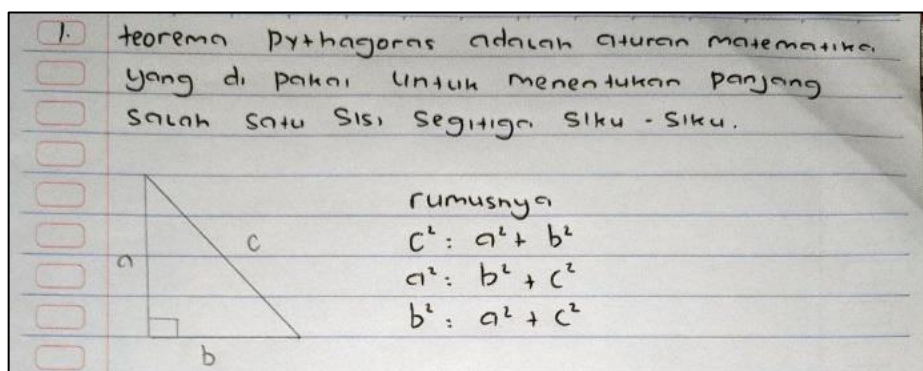 1. teorema pythagoras adalah aturan matematika
yang di pakai untuk menentukan panjang
salah satu sisi segitiga siku - siku.
rumusnya
c
c² : a² + b²
a
a² : b² + c²
b² : a² + c²
b